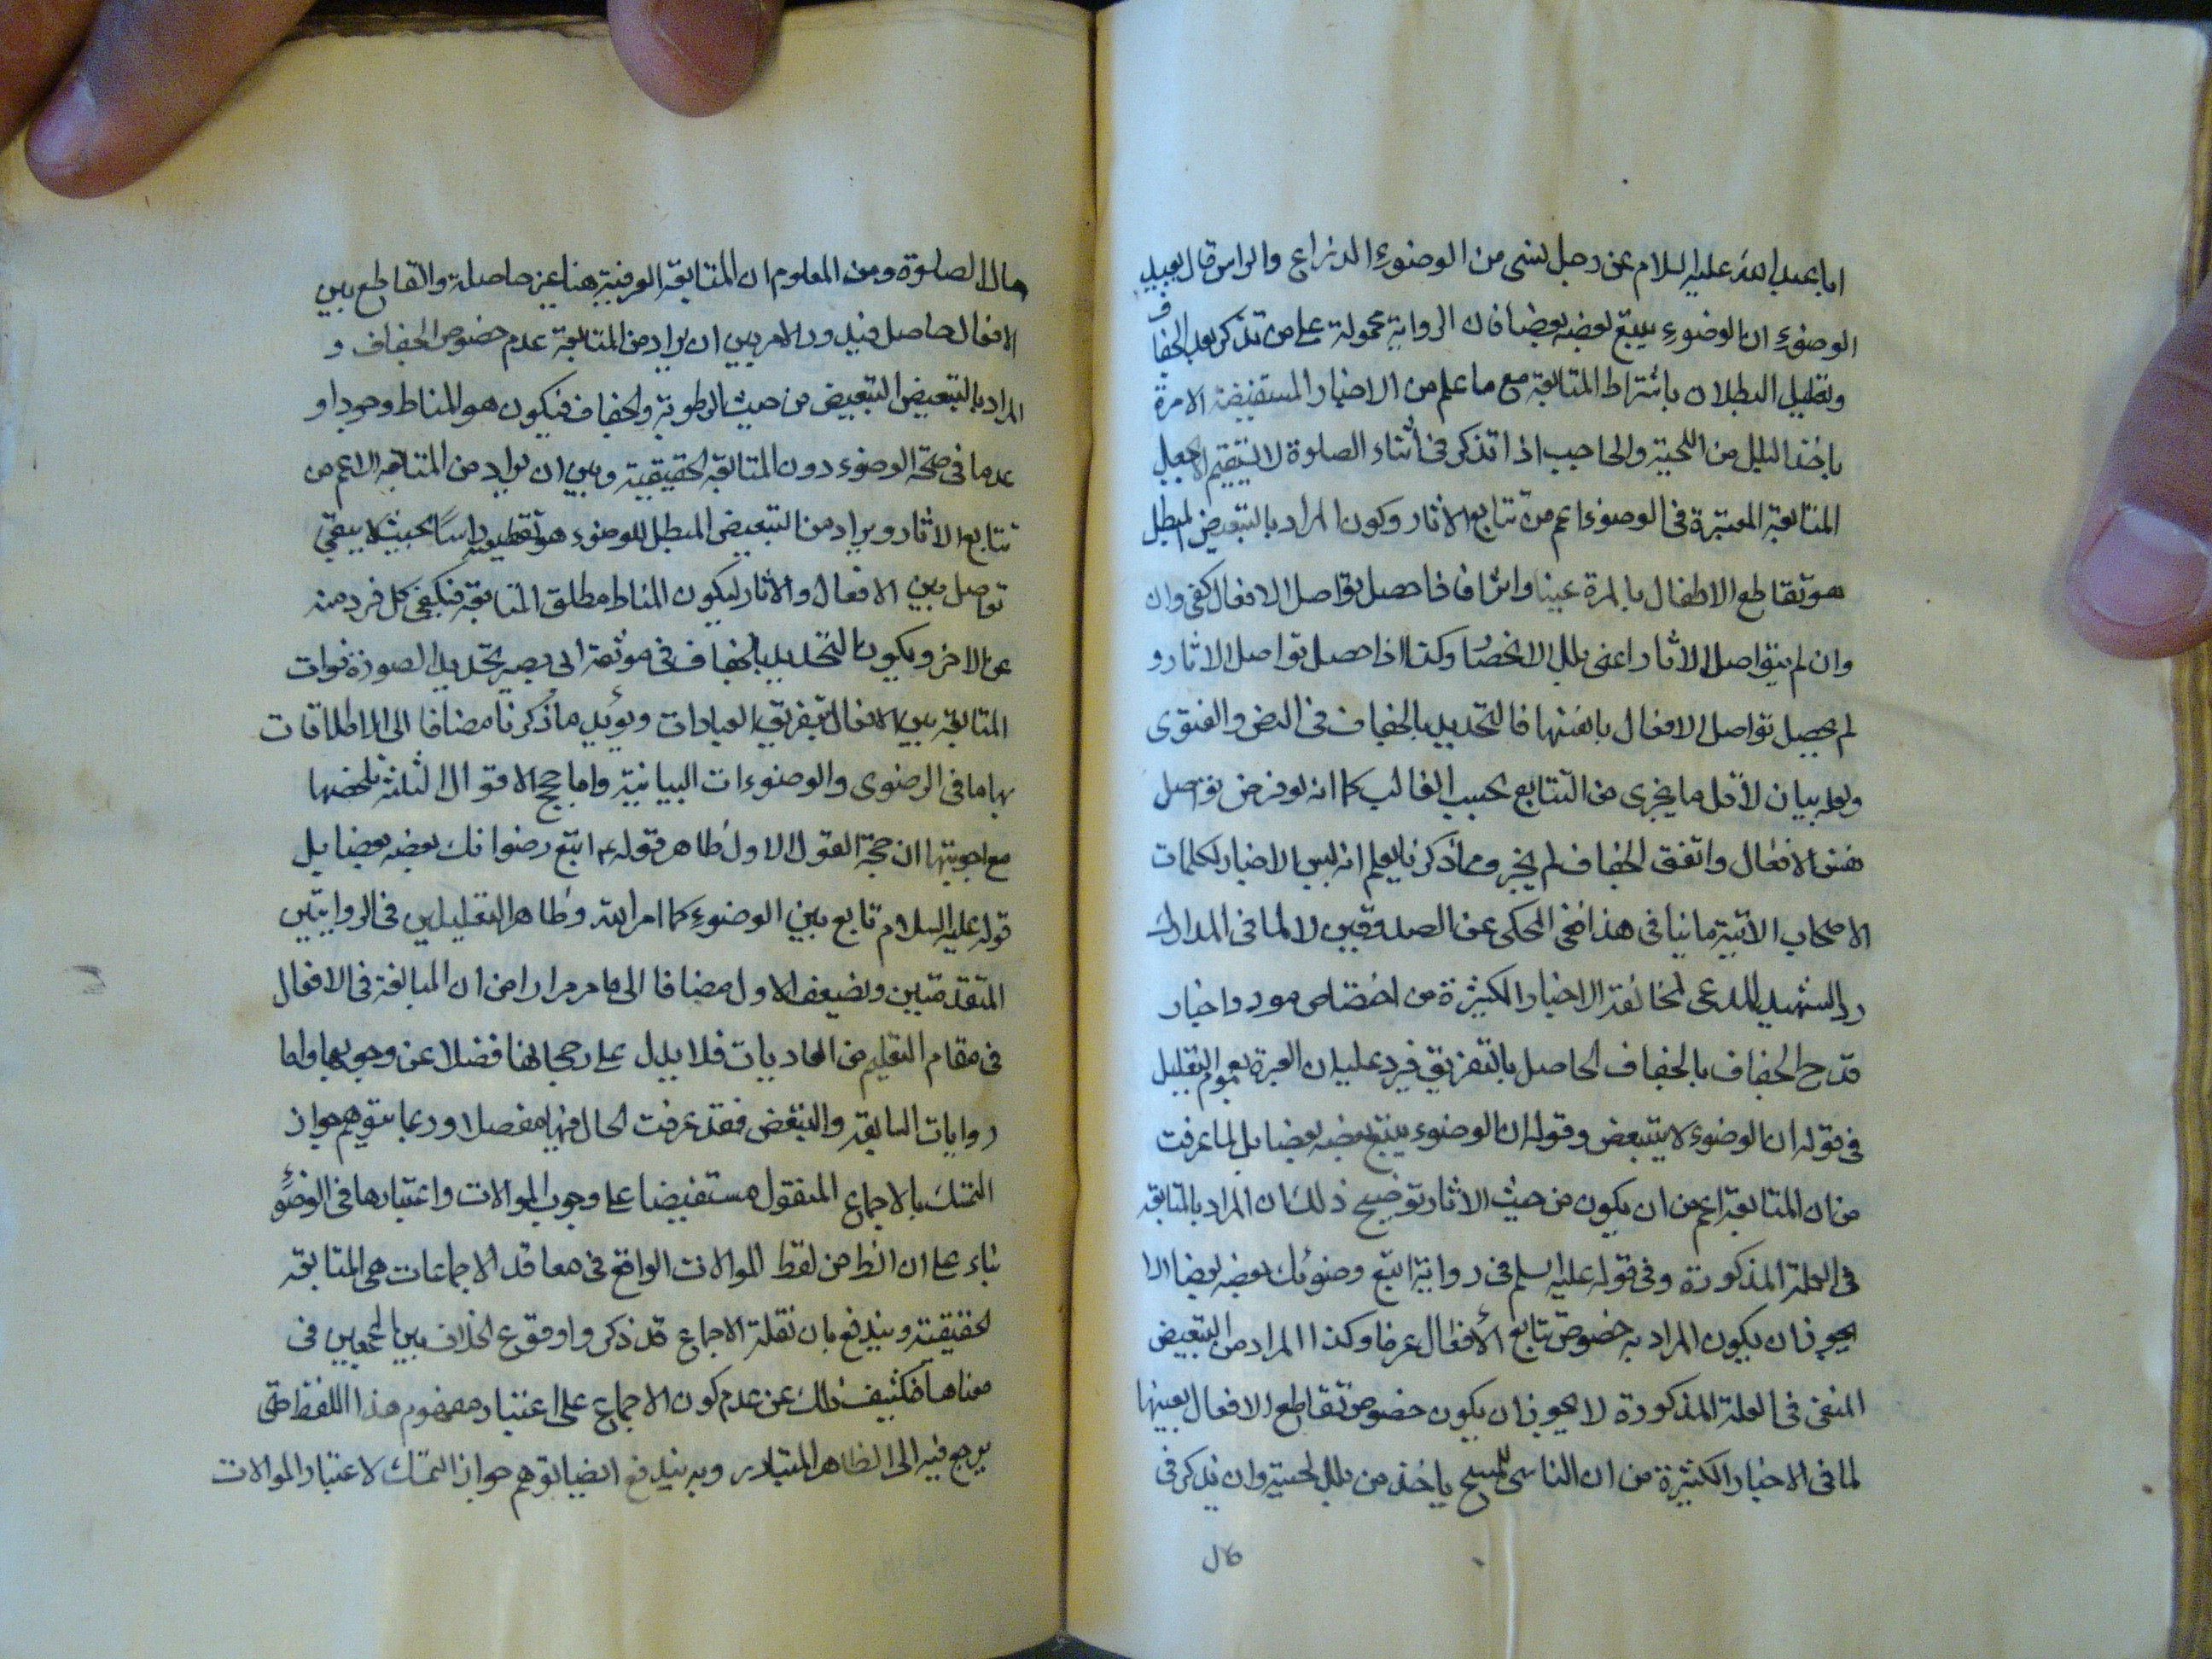 ابا عبد الله عليه السلام عن رجل نسى من الوضوء الذراع والراس قال يعيد
الوضوء ان الوضوء يتبع بعضه بعضا فان الرواية محمولة على من تذكر بعد الجفاف
وتعليل البطلان باشتراط المتابعة مع ما علم من الاخبار المستفيضة الامرة
باخذ البلل من اللحية والحاجب اذا تذكر فى اثناء الصلوة لا يستقيم الا بجعل
المتابعة المعتبرة فى الوضوء اعم من تتابع الاثار وكون المراد بالتبعيض المبطل
هو تقاطع الافعال بالمرة عينا واثرا فاذا حصل تواصل الافعال كفى وان
وان لم يتواصل الاثار اعنى بلل الاعضا وكذا اذا حصل تواصل الاثار و
لم يحصل تواصل الافعال بانفسها فالتحديد بالجفاف فى النص والفتوى
ولعله بيان لاقل ما يجزى من التتابع بحسب الغالب كما انه لو فرض تواصل
نفس الافعال واتفق الجفاف لم يجز ومما ذكرنا يعلم انه ليس لاخبار لكلمات
الاصحاب الاتية ما ينافى هذا فى المحكى عن الصدوقين لا لما فى المدارك
رد الشهيد المدعى لمخالفة الاخبار الكثيرة من اختصاص مورد اخبار
قدح الجفاف بالجفاف الحاصل بالتفريق فيرد عليه ان العبرة بعموم التعليل
فى قوله ان الوضوء لا يتبعض وقوله ان الوضوء يتبع بعضه بعضا بل لما عرفت
من ان المتابعة اعم من ان يكون من حيث الاثار توضيح ذلك ان المراد بالمتابعة
فى العلة المذكورة وفى قوله عليه السلم فى رواية اتبع وضوئك بعضه بعضا لا
يجوز ان يكون المراد به خصوص تتابع الافعال عرفا وكذا المراد من التبعيض
المنفى فى العلة المذكورة لا يجوز ان يكون خصوص تقاطع الافعال بعينها
لما فى الاخبار الكثيرة من ان الناسى للمسح ياخذ من بلل لحيته وان يذكر فى
حال
حال الصلوة ومن المعلوم ان المتابعة العرفية هنا غير حاصلة والتقاطع بين
الافعال حاصل فيدور الامر بين ان يراد من المتابعة عدم خصوص الجفاف و
المراد بالتبعيض التبعيض من حيث الرطوبة والجفاف فيكون هو المناط وجودا و
عدما فى صحة الوضوء دون المتابعة الحقيقية وبين ان يراد من المتابعة الاعم من
تتابع الاثار ويراد من التبعيض المبطل للوضوء هو تقطيعه راسا بحيث لا يبقى
تواصل بين الافعال والاثار ليكون المناط مطلق المتابعة فيكفى كل فرد منه
عن الاخر ويكون التحديد بالجفاف فى موثقة ابى بصير تحديد الصورة فوات
المتابعة بين الافعال بتفريق العبادات ويؤيد ما ذكرنا مضافا الى الاطلاقات
بها ما فى الرضوى والوضوءات البيانية واما حجج الاقوال الثلثة فلخصها
مع اجوبتها ان حجة القول الاول ظاهر قوله ع اتبع وضوانك بعضه بعضا بل
قوله عليه السلام تابع بين الوضوء كما امر الله وظاهر التعليلين فى الروايتين
المتقدمتين وتضيعف الاول مضافا الى ما مر مرارا من ان المبالغة فى الافعال
فى مقام التعليم من العاديات فلا يدل على رجحانها فضلا عن وجوبها واما
روايات السابقة والتبعض فقد عرفت الحال فيها مفصلا وربما يتوهم جواز
التمسك بالاجماع المنقول مستفيضا على وجوب الموالات واعتبارها فى الوضؤ
بناء على ان الظ من لفظ الموالات الواقع فى معاقد الاجماعات هى المتابعة
الحقيقية ويندفع بان نقلة الاجماع قد ذكروا وقوع الخلاف بين المجمعين فى
معناها فكشف ذلك عن عدم كون الاجماع على اعتبار مفهوم هذا اللفظ حتى
يرجع فيه الى الظاهر المتبادر وبه يندفع ايضا توهم جواز التمسك لاعتبار الموالات